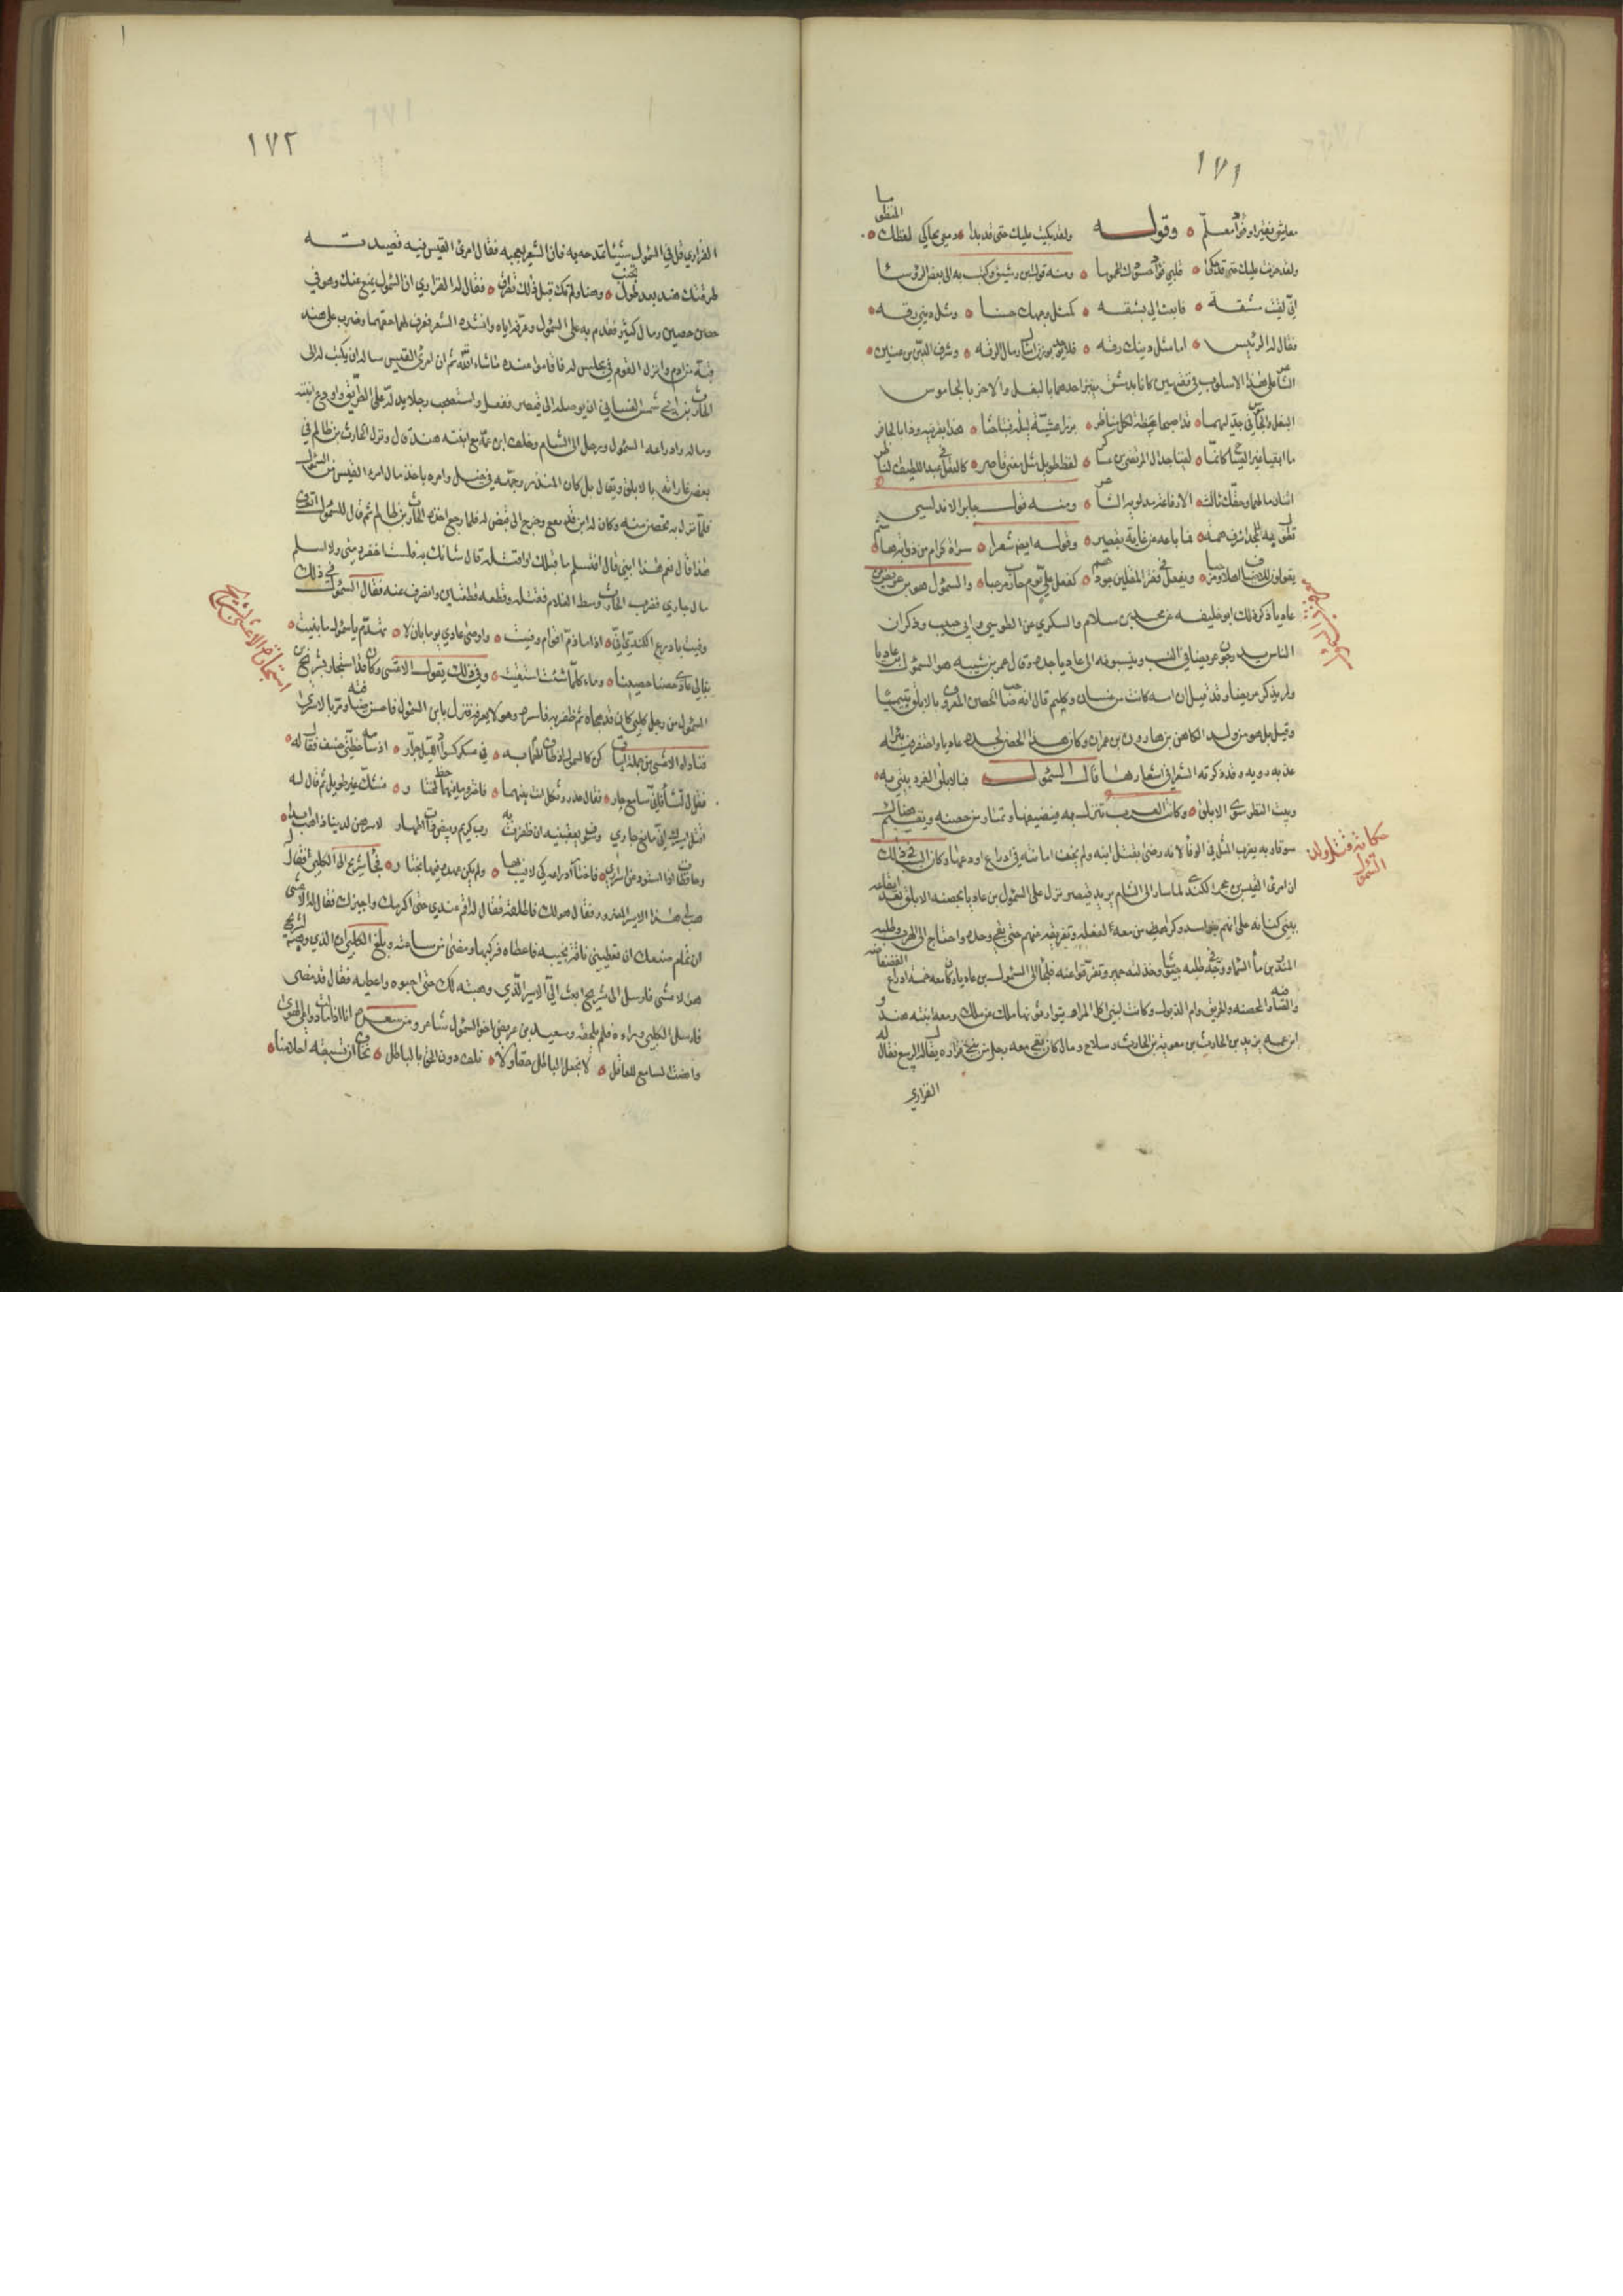 ١٧١
وقوله ولقد بكيت عليك حتى قد بدا دمعي يحاكي لفظك المنظوما
ولقد حزنت عليك حتى قد حكى قلبي فؤاد حسودك المحموما ومنه قول ابن رشيق وكتب به الى بعض الرؤسا
اني لقيت مشقة فابعث الي بشقه كمثل وجهك حسنا ومثل ديني رقه
فقال له الرئيس اما مثل دينك رقه فلا يوجد من رمال الرقه وشرف الدين بن عنين
على هذا الاسلوب في فقيهين كانا بدمشق ينبز احدهما بالبغل والاخر بالجاموس
البغل والجاموس في جدليهما قد اصبحا عظة لكل مناظر برزا عشية ليلة فتباحثا هذا بقرنيه وذا بالحافر
ما اتقيا غير الصياح كانما لقيا جدال المرتضى بن عساكر لفظ طويل تحت معنى قاصر كالعقل في عبد اللطيف الناظر
اثنان ما لهما وحقك ثالث الا رقاعة مدلويه الشاعر ومنه قول جابر الاندلسي
وقوله ايضا شعرا سراة كرام من ذوابة هاشم
يقولون للاضياف اهلا ومرحبا ويفعل في فقر المقلين جودهم كفعل علي يوم حارب مرحبا والسموأل هو بن عريض بن
عاديا ذكر ذلك ابو خليفه عن محمد بن سلام والسكري عن الطوسي وابي حبيب وذكر ان
الناس يدرجون عريضا في النسب وينسبونه الى عاديا جده وقال عمر بن شيبه هو السموأل بن عاديا
ولم يذكر عريضا وقد قيل ان امه كانت من غسان وكلهم قال انه صاحب الحصن المعروف بالابلق بتيما
وقيل بل هو من ولد الكاهن بن هارون بن عمران وكان هذا الحصن لجده عاديا واحتفر فيه بئرا
عذبه رويه وقد ذكرته الشعرا في اشعارها قال السموأل فبالابلق الفرد بيتي به
وبيت النظير سوى الابلق وكانت العرب تنزل به فيضيفها وتمتار من حصنه ويقيم هنالك
سوقا وبه يضرب المثل في الوفا لانه رضي بقتل ابنه ولم يخف امانته في ادراع اودعها وكان السبب في ذلك
ان امرئ القيس بن حجر الكندي لما سار الى الشام يريد قيصر نزل على السموأل بن عاديا بحصنه الابلق بعد ايقاعه
ببني كنانه على انهم بنو اسد وكراهية من معه لفعله وتفرقهم عنهم حتى بقي وحده واحتاج الى الهرب وطلبه
المنذر بن ما السما ووجه في طلبه جيشا وخذلته حمير وتفرقوا عنه فلجأ الى السموأل بن عاديا وكان معه خمسة ادراع الفضفاضه
والضافيه والمحصنه والخريق وام الذيول وكانت لبني اكل المرار يتوارثونها ملك عن ملك ومعه ابنته هند و
ابن عمه يزيد بن الحارث بن معويه بن الحارث وسلاح ومال كان بقي معه ورجل من بني فزاره يقال له الربيع فقال له
الفزاري
حكاية قتل ولد السموأل
١٧٢
الفزاري قل في السموأل شيئا تمدحه به فان الشعر يعجبه فقال امرئ القيس فيه قصيدته
طرقتك هند بعد طول تجنب وهنا ولم تك قبل ذلك تطرق فقال له الفزاري ان السموأل يمنع عنك وهو في
حصن حصين ومال كثير فقدم به على السموأل وعرفه اياه وانشده الشعر فعرف لهما حقهما وضرب على هند
قبة من ادم وانزل القوم في مجلس له فاقاموا عنده ما شاء الله ثم ان امرئ القيس ساله ان يكتب له الى
الحارث بن ابي شمر الغساني ان يوصله الى قيصر ففعل واستصحب رجلا يدله على الطريق واودع ابنته
وماله وادراعه السموأل ورحل الى الشام وخلف ابن عمه مع ابنته هند قال ونزل الحارث بن ظالم في
بعض غاراته بالابلق ويقال بل كان المنذر وجهه في خيل وامره باخذ مال امرء القيس من السموأل
فلما نزل به تحصن منه وكان له ابن قد يفع وخرج الى قنص له فلما رجع اخذه الحارث بن ظالم ثم قال للسموأل اتعرف
هذا قال نعم هذا ابني قال افتسلم ما قبلك او اقتله قال شانك به فلست اخفر ذمتي ولا اسلم
مال جاري فضرب الحارث وسط الغلام فقتله وقطعه قطعتين وانصرف عنه فقال السموأل في ذلك
وفيت بادرع الكندي اني اذا ما ذم اقوام وفيت واوصى عاديا يوما بان لا تهدم يا سموأل ما بنيت
بنى لي عاديا حصنا حصينا وماء كلما شئت استقيت وفي ذلك يقول الاعشى وكان قد استجار بشريح بن
السموأل من رجل كلبي كان قد هجاه ثم ظفر به فاسره وهو لا يعرفه فنزل بابن السموأل فاحسن ضيافته ومر بالاسرى
فناداه الاعشى من جملة ابيات كن كالسموأل اذ طاف الهمام به في عسكر كسواد الليل جرار اذ سامه خطتي خسف فقال له
فقل ما تشأ فاني سامع حار فقال غدر وثكل انت بينهما فاختر وما فيهما حظ لمختار فشك غير طويل ثم قال له
اقتل اسيرك اني مانع جاري وسوف يعقبنيه ان ظفرت به رب كريم وبيض ذات اطهار لا سرهن لدينا ذاهب هدرا
وحافظات اذا استودعن اسراري فاختار ادراعه كي لا يسب بها ولم يكن عهده فيها بختار فجا شريح الى الكلبي فقال
هب لي هذا الاسير المضرور فقال هو لك فاطلقه فقال له اقم عندي حتى اكرمك واجيزك فقال له الاعشى
ان تمام صنعك ان تعطيني ناقة نجيبه فاعطاه فركبها ومضى من ساعته وبلغ الكلبي ان الذي وهب لشريح
هو الاعشى فارسل الى شريح ابعث الي الاسير الذي وهبته لك حتى احبوه واعطيه فقال قد مضى
فارسل الكلبي وراءه فلم يلحقه وسعيد بن عريض اخو السموأل شاعر ومن شعره انا اذا مالت دواعي الهوى
وانصت السامع للقائل لا نجعل الباطل حقا ولا نلط دون الحق بالباطل نخاف ان تسفه احلامنا